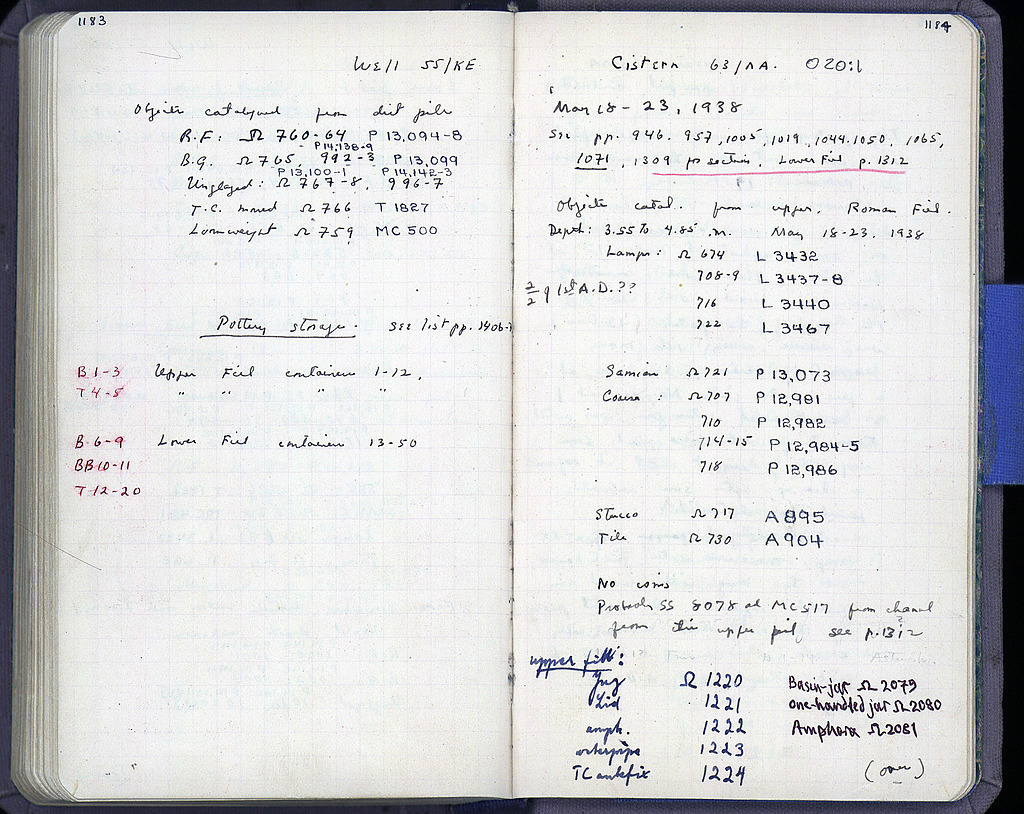 1183
WE/1 55/KE
Objects catalogued from dirt pile
R.F: Ω 760-64 P 13,094-8
P 14,138-9
B.G. Ω 765, 992-3 P 13,099
P 13,100-1 P 14,142-3
Unglazed: Ω 767-8, 996-7
T.C. mould Ω 766 T 1827
Loomweight Ω 759 MC 500
Pottery storage. see list pp. 1406-7
B 1-3 Upper Fill containers 1-12,
T 4-5 " " " "
B 6-9 Lower Fill containers 13-50
BB 10-11
T 12-20
1184
Cistern 63/ΛA. O 20:1
May 18-23, 1938
See pp. 946, 957, 1005, 1019, 1044, 1050, 1065,
1071, 1309 for section. Lower Fill p. 1312
Objects catal. from upper, Roman Fill.
Depth: 3.55 to 4.85 m. May 18-23, 1938
Lamps: Ω 674 L 3432
708-9 L 3437-8
2/2 of 1st A.D.??
716 L 3440
722 L 3467
Samian Ω 721 P 13,073
Coarse: Ω 707 P 12,981
710 P 12,982
714-15 P 12,984-5
718 P 12,986
Stucco Ω 717 A 895
Tile Ω 730 A 904
No coins
Probably SS 8078 and MC 517 from channel
from this upper fill see p. 1312
upper fill:
Jug Ω 1220 Basin-jar Ω 2079
Lid 1221 one-handled jar Ω 2080
amph. 1222 Amphora Ω 2081
waterpipe 1223
TC antefix 1224 (over)